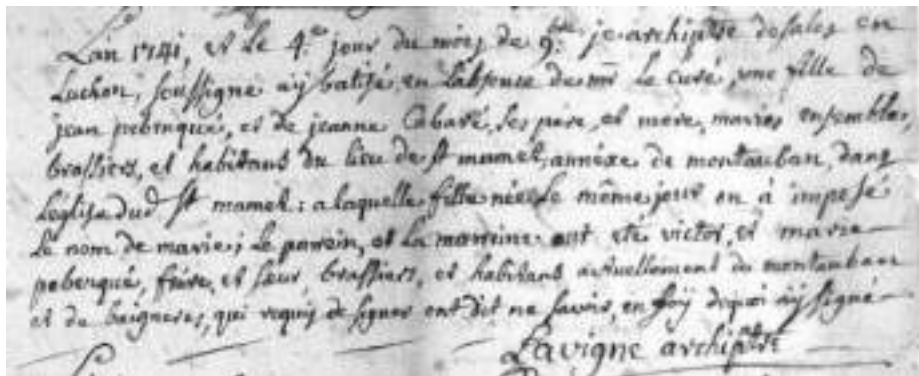 L'an 1741, et le 4.e jour du mois de 9.bre je archiptre de sales en
Luchon, soussigné aÿ batisé en l'absence de mr le curé, une fille de
jean peberqué, et de jeanne Cabaré, ses père, et mere, mariés ensembles,
brassiers, et habitans du lieu de st mamet, annéxe de montauban, dans
L'église dud st mamet: a laquelle fille née le même jour on à imposé
le nom de marie; le parrein, et la marreine ont été victor, et marie
peberqué, frère, et sœur, brassiers, et habitans actuellement de montauban
et de baigneres, qui requis de signer ont dit ne savoir, en foÿ dequoi aÿ signé
Lavigne archiptre